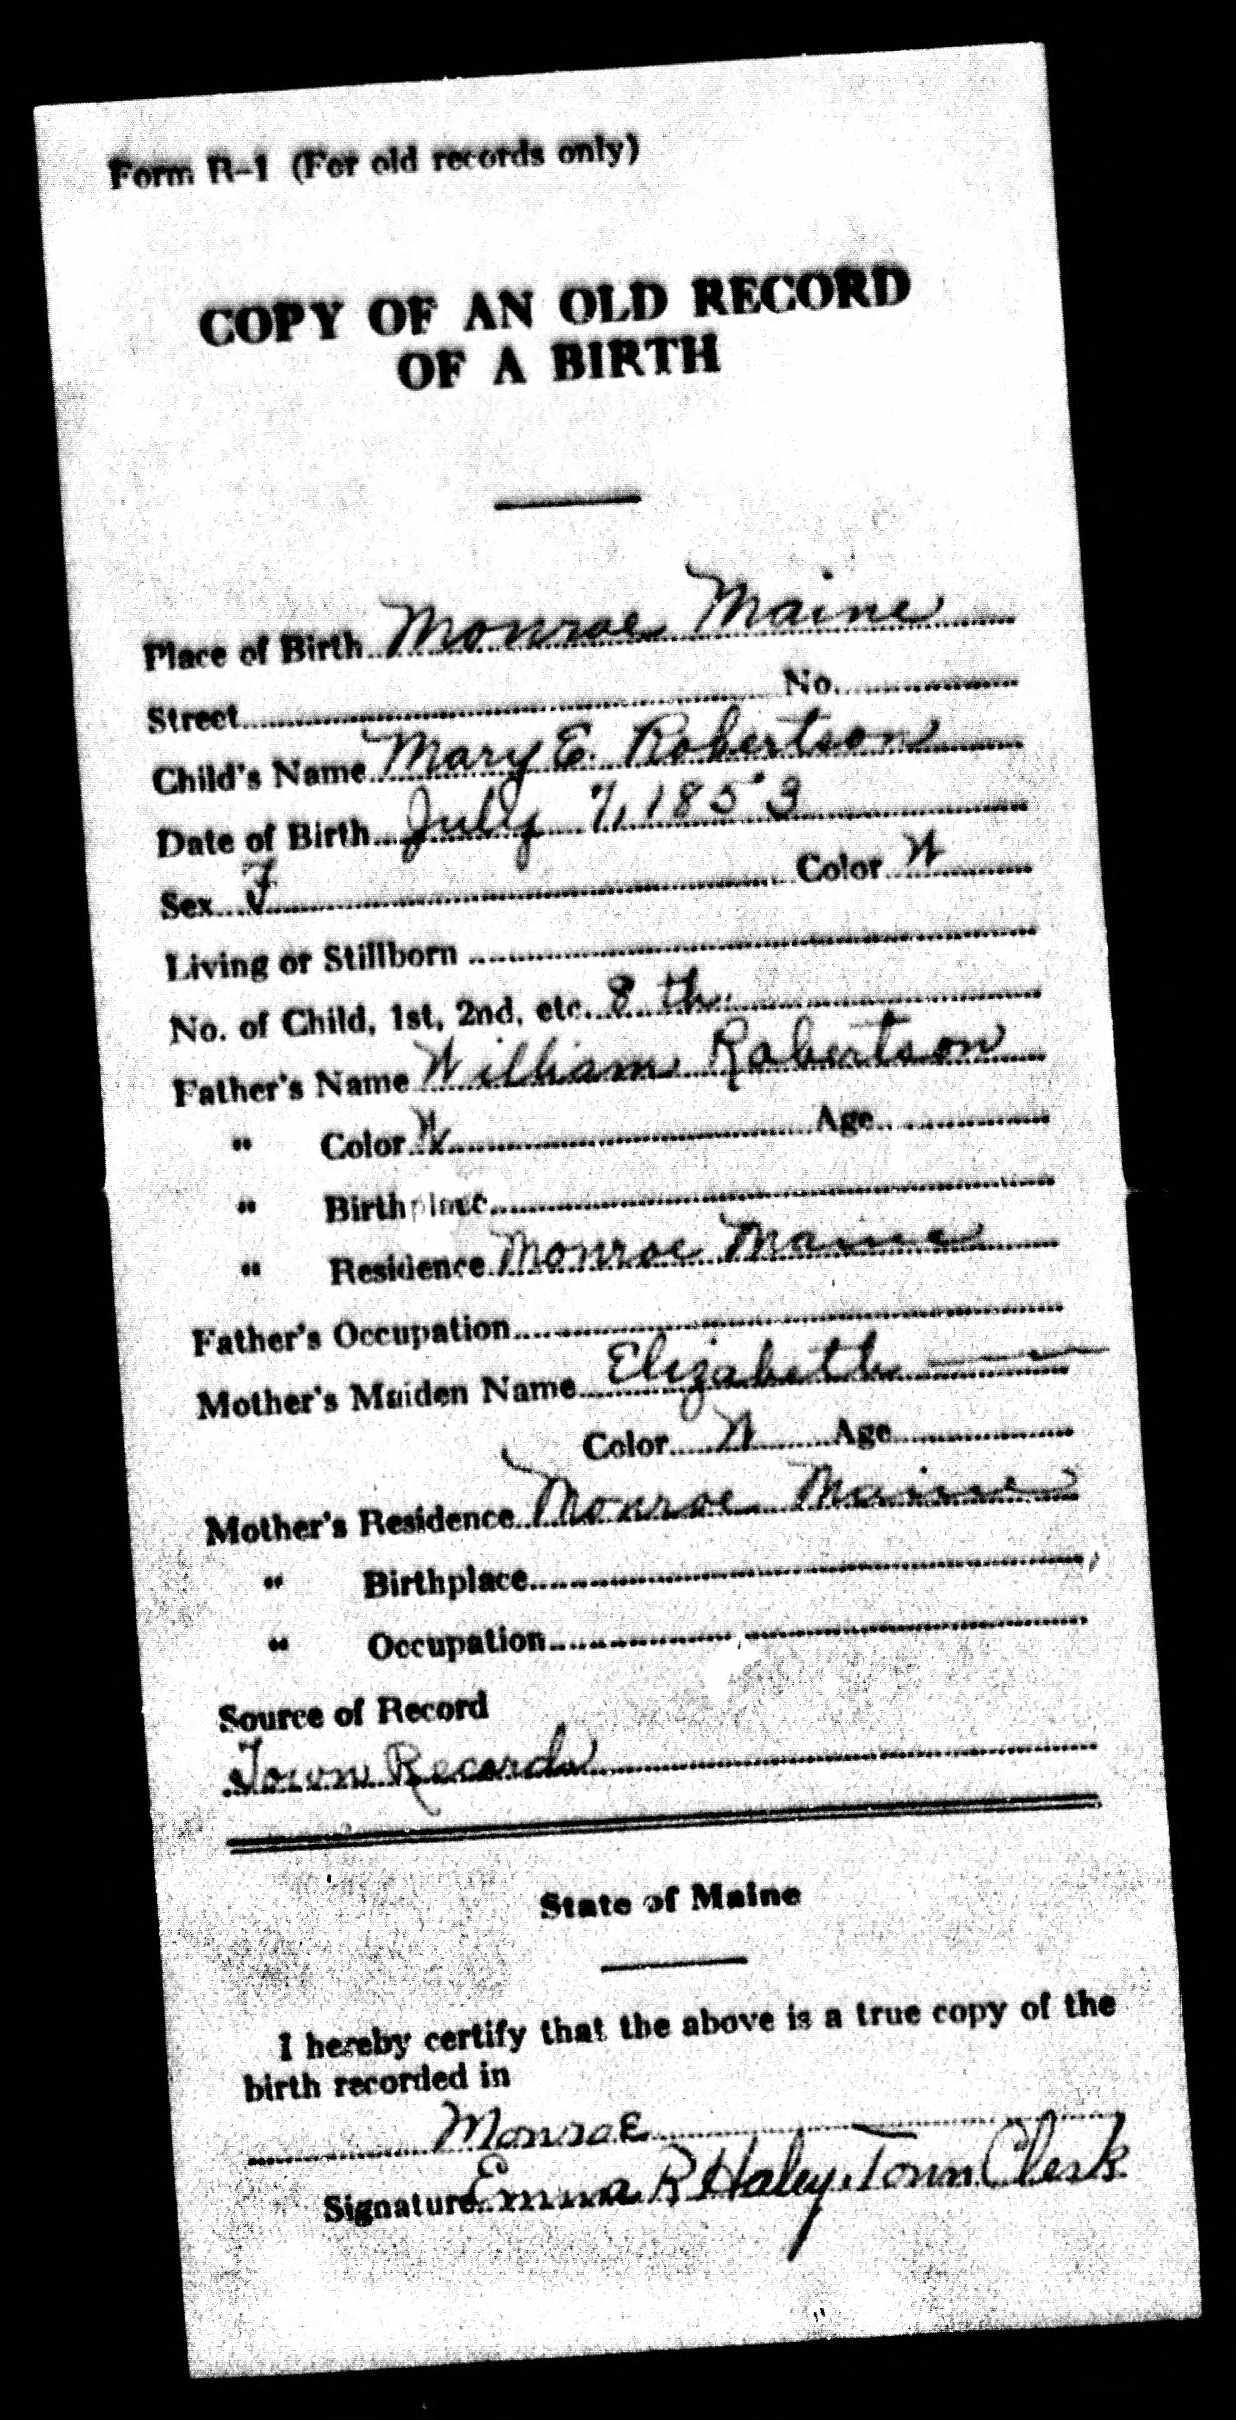 Form R-1 (For old records only)
COPY OF AN OLD RECORD
OF A BIRTH
Place of Birth Monroe Maine
Street No.
Child's Name Mary E. Robertson
Date of Birth July 7, 1853
Sex F Color W
Living or Stillborn
No. of Child, 1st, 2nd, etc. 8th.
Father's Name William Robertson
" Color W Age
" Birthplace
" Residence Monroe Maine
Father's Occupation
Mother's Maiden Name Elizabeth —
Color W Age
Mother's Residence Monroe Maine
" Birthplace
" Occupation
Source of Record
Town Records
State of Maine
I hereby certify that the above is a true copy of the
birth recorded in
Monroe
Signature Emma R Haley, Town Clerk